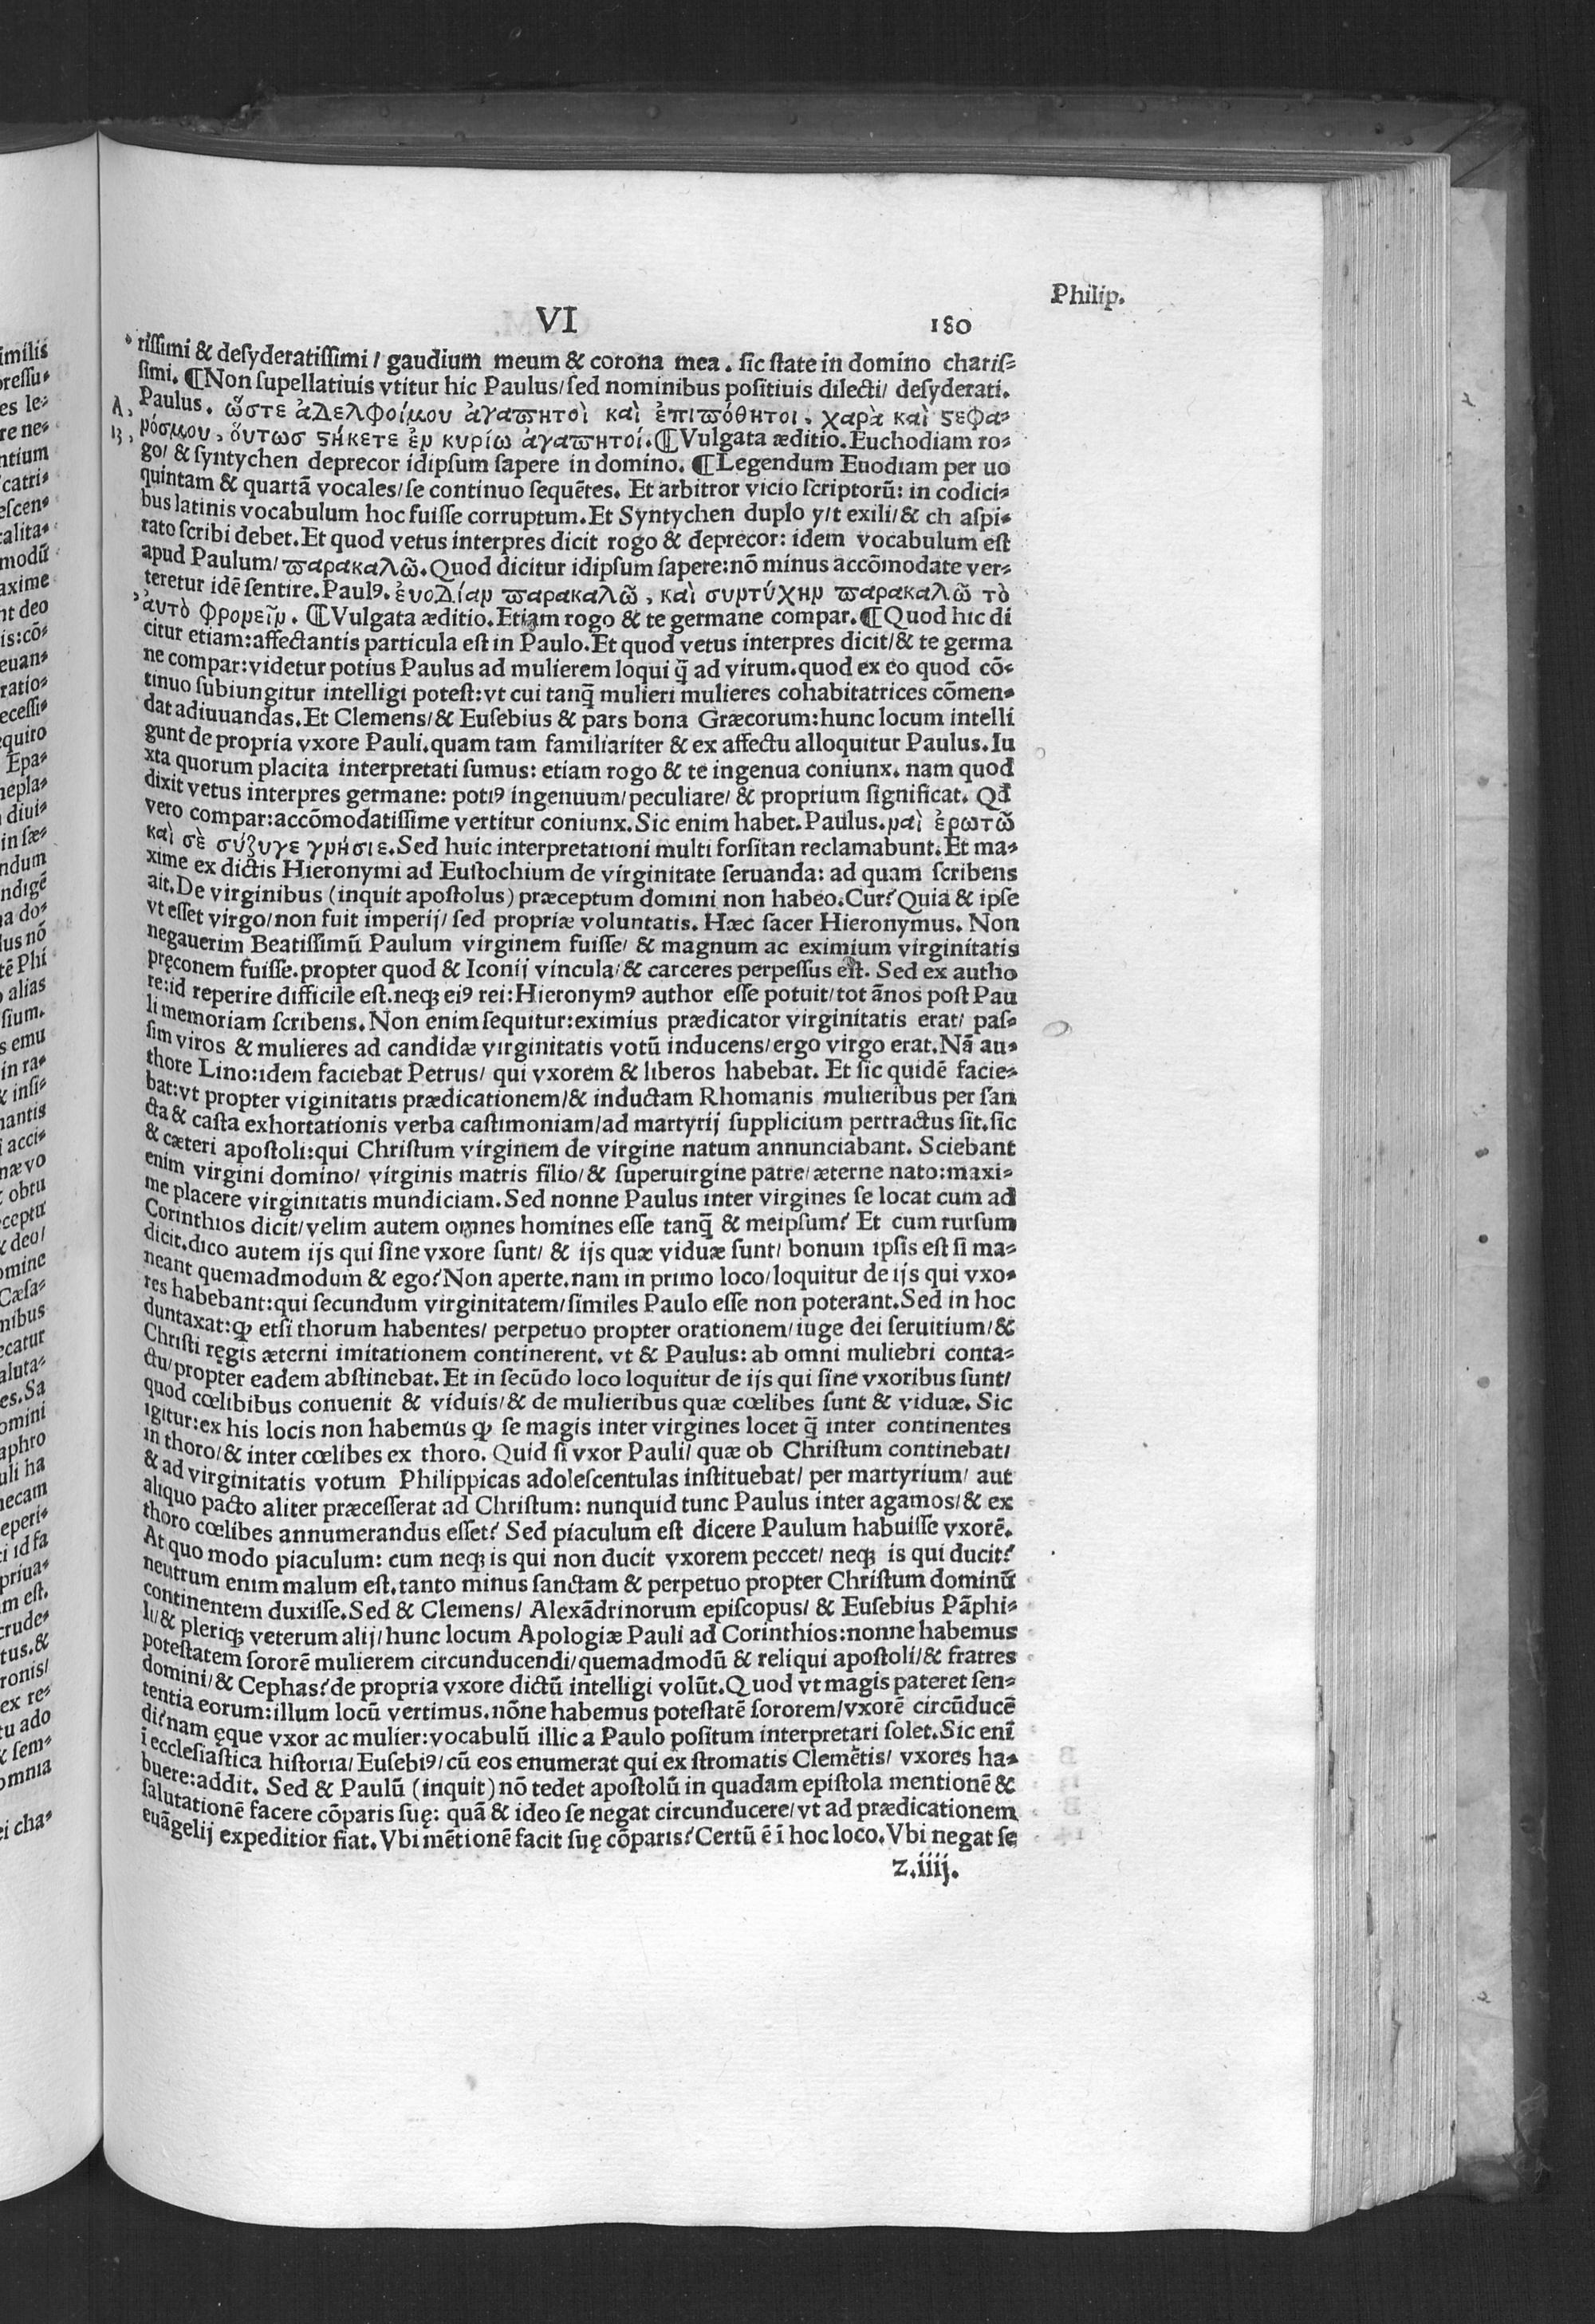 Philip.
VI 180
rissimi & desyderatissimi / gaudium meum & corona mea . sic state in domino charis-
simi. ¶Non supellatiuis vtitur hic Paulus/sed nominibus positiuis dilecti/ desyderati.
A, Paulus. ὥστε ἀδελφοίμου ἀγαπητοὶ καὶ ἐπιπόθητοι, χαρὰ καὶ ϛεφα-
B, νόσμου, ὅυτωσ ϛήκετε ἐν κυρίω ἀγαπητοί. ¶Vulgata æditio. Euchodiam ro-
go/ & syntychen deprecor idipsum sapere in domino. ¶Legendum Euodiam per uo
quintam & quartā vocales/se continuo sequētes. Et arbitror vicio scriptorū: in codici-
bus latinis vocabulum hoc fuisse corruptum. Et Syntychen duplo y/t exili/& ch aspi-
rato scribi debet. Et quod vetus interpres dicit rogo & deprecor: idem vocabulum est
apud Paulum/ παρακαλῶ. Quod dicitur idipsum sapere: nō minus accōmodate ver-
teretur idē sentire. Paulꝰ. ἐυοδίαν παρακαλῶ, καὶ συντύχην παρακαλῶ τὸ
ἀυτὸ φρονεῖν. ¶Vulgata æditio. Etiam rogo & te germane compar. ¶Quod hic di
citur etiam: affectantis particula est in Paulo. Et quod vetus interpres dicit/& te germa
ne compar: videtur potius Paulus ad mulierem loqui q̃ ad virum. quod ex eo quod cō-
tinuo subiungitur intelligi potest: vt cui tanq̃ mulieri mulieres cohabitatrices cōmen-
dat adiuuandas. Et Clemens/& Eusebius & pars bona Græcorum: hunc locum intelli
gunt de propria vxore Pauli. quam tam familiariter & ex affectu alloquitur Paulus. Iu
xta quorum placita interpretati sumus: etiam rogo & te ingenua coniunx. nam quod
dixit vetus interpres germane: potiꝰ ingenuum/peculiare/ & proprium significat. Qd̄
vero compar: accōmodatissime vertitur coniunx. Sic enim habet. Paulus. ναὶ ἐρωτῶ
καὶ σὲ σύζυγε γνήσιε. Sed huic interpretationi multi forsitan reclamabunt. Et ma-
xime ex dictis Hieronymi ad Eustochium de virginitate seruanda: ad quam scribens
ait. De virginibus (inquit apostolus) præceptum domini non habeo. Cur? Quia & ipse
vt esset virgo/non fuit imperij/ sed propriæ voluntatis. Hæc sacer Hieronymus. Non
negauerim Beatissimū Paulum virginem fuisse/ & magnum ac eximium virginitatis
pręconem fuisse. propter quod & Iconij vincula/& carceres perpessus est. Sed ex autho
re: id reperire difficile est. neq; eiꝰ rei: Hieronymꝰ author esse potuit/tot ānos post Pau
li memoriam scribens. Non enim sequitur: eximius prædicator virginitatis erat/ pas-
sim viros & mulieres ad candidæ virginitatis votū inducens/ergo virgo erat. Nā au-
thore Lino: idem faciebat Petrus/ qui vxorem & liberos habebat. Et sic quidē facie-
bat: vt propter viginitatis prædicationem/& inductam Rhomanis mulieribus per san
cta & casta exhortationis verba castimoniam/ad martyrij supplicium pertractus sit. sic
& cæteri apostoli: qui Christum virginem de virgine natum annunciabant. Sciebant
enim virgini domino/ virginis matris filio/& superuirgine patre/æterne nato: maxi-
me placere virginitatis mundiciam. Sed nonne Paulus inter virgines se locat cum ad
Corinthios dicit/velim autem omnes homines esse tanq̃ & meipsum? Et cum rursum
dicit. dico autem ijs qui sine vxore sunt/ & ijs quæ viduæ sunt/ bonum ipsis est si ma-
neant quemadmodum & ego? Non aperte. nam in primo loco/loquitur de ijs qui vxo-
res habebant: qui secundum virginitatem/similes Paulo esse non poterant. Sed in hoc
duntaxat: ꝙ etsi thorum habentes/ perpetuo propter orationem/iuge dei seruitium/&
Christi ręgis æterni imitationem continerent. vt & Paulus: ab omni muliebri conta-
ctu/propter eadem abstinebat. Et in secūdo loco loquitur de ijs qui sine vxoribus sunt/
quod cœlibibus conuenit & viduis/& de mulieribus quæ cœlibes sunt & viduæ. Sic
igitur: ex his locis non habemus ꝙ se magis inter virgines locet q̃ inter continentes
in thoro/& inter cœlibes ex thoro. Quid si vxor Pauli/ quæ ob Christum continebat/
& ad virginitatis votum Philippicas adolescentulas instituebat/ per martyrium/ aut
aliquo pacto aliter præcesserat ad Christum: nunquid tunc Paulus inter agamos/& ex
thoro cœlibes annumerandus esset? Sed piaculum est dicere Paulum habuisse vxorē.
At quo modo piaculum: cum neq; is qui non ducit vxorem peccet/ neq; is qui ducit?
neutrum enim malum est. tanto minus sanctam & perpetuo propter Christum dominū
continentem duxisse. Sed & Clemens/ Alexādrinorum episcopus/ & Eusebius Pāphi-
li/& pleriq; veterum alij/hunc locum Apologiæ Pauli ad Corinthios: nonne habemus
potestatem sororē mulierem circunducendi/quemadmodū & reliqui apostoli/& fratres
domini/& Cephas? de propria vxore dictū intelligi volūt. Quod vt magis pateret sen-
tentia eorum: illum locū vertimus. nōne habemus potestatē sororem/vxorē circūducē
di? nam ęque vxor ac mulier: vocabulū illic a Paulo positum interpretari solet. Sic eni
ī ecclesiastica historia/ Eusebiꝰ/ cū eos enumerat qui ex stromatis Clemētis/ vxores ha-
buere: addit. Sed & Paulū (inquit) nō tedet apostolū in quadam epistola mentionē &
salutationē facere cōparis suę: quā & ideo se negat circunducere/vt ad prædicationem
euāgelij expeditior fiat. Vbi mētionē facit suę cōparis? Certū ē ī hoc loco. Vbi negat se
z.iiij.